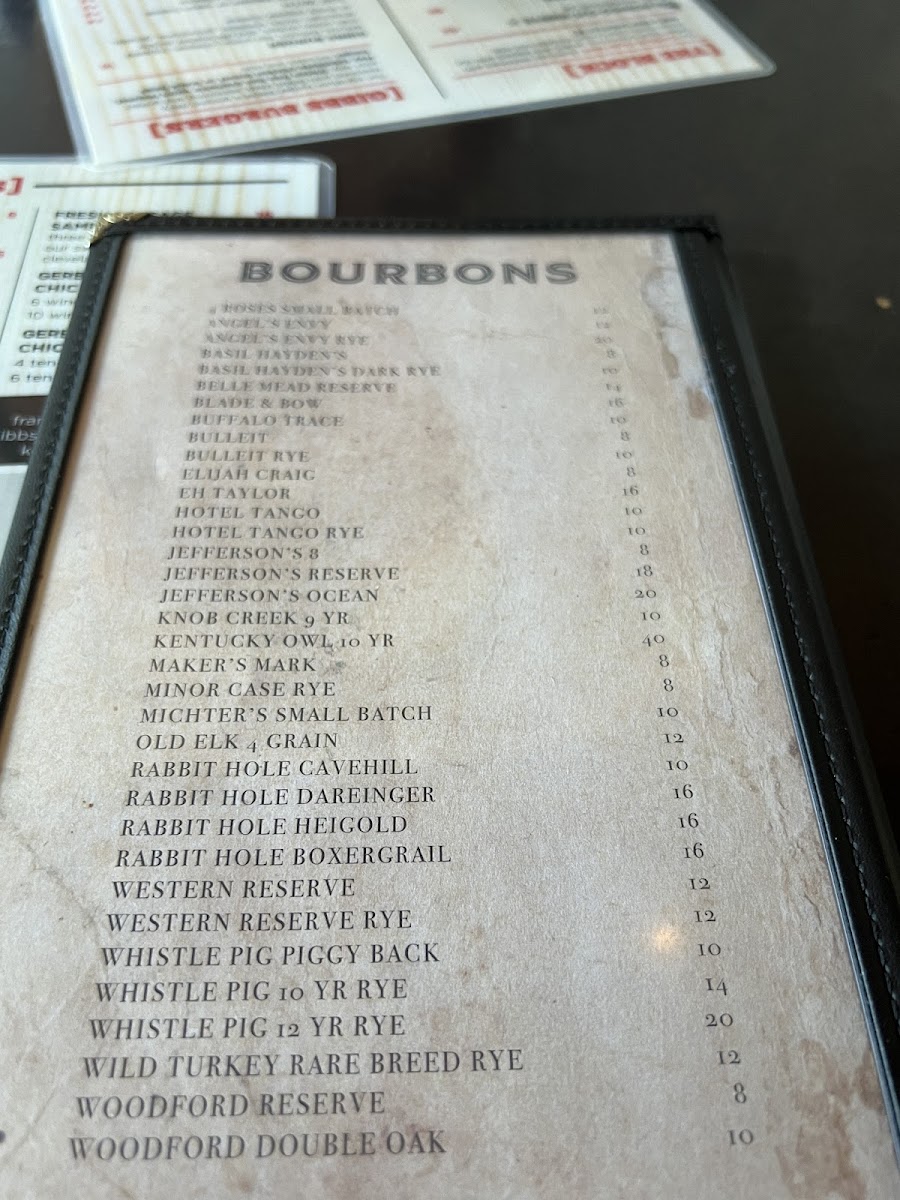 [THE BLOCK]
[GIBBS BURGERS]
FRESH
SAM
GERB
CHIC
6 win
10 win
GERB
CHIC
4 ten
6 ten
BOURBONS
4 ROSES SMALL BATCH 12
ANGEL'S ENVY 12
ANGEL'S ENVY RYE 20
BASIL HAYDEN'S 8
BASIL HAYDEN'S DARK RYE 10
BELLE MEAD RESERVE 14
BLADE & BOW 16
BUFFALO TRACE 10
BULLEIT 8
BULLEIT RYE 10
ELIJAH CRAIG 8
EH TAYLOR 16
HOTEL TANGO 10
HOTEL TANGO RYE 10
JEFFERSON'S 8 8
JEFFERSON'S RESERVE 18
JEFFERSON'S OCEAN 20
KNOB CREEK 9 YR 10
KENTUCKY OWL 10 YR 40
MAKER'S MARK 8
MINOR CASE RYE 8
MICHTER'S SMALL BATCH 10
OLD ELK 4 GRAIN 12
RABBIT HOLE CAVEHILL 10
RABBIT HOLE DAREINGER 16
RABBIT HOLE HEIGOLD 16
RABBIT HOLE BOXERGRAIL 16
WESTERN RESERVE 12
WESTERN RESERVE RYE 12
WHISTLE PIG PIGGY BACK 10
WHISTLE PIG 10 YR RYE 14
WHISTLE PIG 12 YR RYE 20
WILD TURKEY RARE BREED RYE 12
WOODFORD RESERVE 8
WOODFORD DOUBLE OAK 10